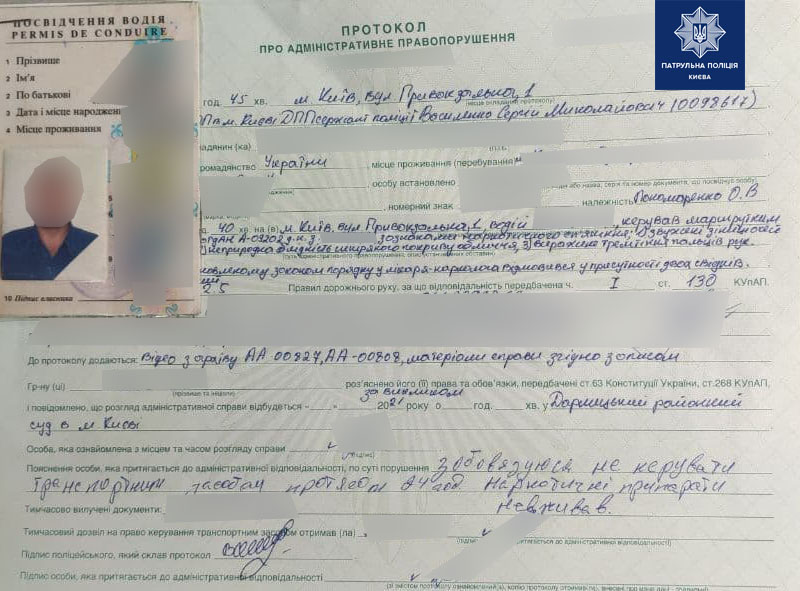 ПОСВІДЧЕННЯ ВОДІЯ
PERMIS DE CONDUIRE
1 Прізвище
2 Ім'я
2 По батькові
3 Дата і місце народжен
4 Місце проживання
10 Підпис власника
ПАТРУЛЬНА ПОЛІЦІЯ
КИЄВА
ПРОТОКОЛ
ПРО АДМІНІСТРАТИВНЕ ПРАВОПОРУШЕННЯ
год. 45 хв. м. Київ, вул Привокзальна, 1
(місце складання протоколу)
м. Києві ДПП сержант поліції Василенко Сергій Миколайович (0098617)
громадянство України , місце проживання (перебування)
особу встановлено
, номерний знак належність Пономаренко О.В
40 хв. на (в) м. Київ, вул Привокзальна, 1 водій керував маршрутним
д.н.з. з ознаками наркотичного сп'яніння: 1) звужені зіниці очей
2) неприродна блідність шкіряного покриву обличчя, 3) виражене тремтіння пальців рук.
законом порядку у лікаря-нарколога відмовився у присутності двох свідків.
2.5 Правил дорожнього руху, за що відповідальність передбачена ч. I ст. 130 КУпАП.
До протоколу додаються: Відео з АА 00827, АА-00808, матеріали справи згідно з описом
Гр-ну (ці) роз'яснено його (її) права та обов'язки, передбачені ст.63 Конституції України, ст.268 КУпАП,
(прізвище та ініціали)
за викликом
і повідомлено, що розгляд адміністративної справи відбудеться 2021 року о год. хв. у Дарницький районний
суд в м Києві
Особа, яка ознайомлена з місцем та часом розгляду справи
(підпис)
Пояснення особи, яка притягається до адміністративної відповідальності, по суті порушення зобов'язуюсь не керувати
транспортним засобом протягом 24 год наркотичні препарати
не вживав.
Тимчасово вилучені документи:
Тимчасовий дозвіл на право керування транспортним засобом отримав (ла)
Підпис поліцейського, який склав протокол
Підпис особи, яка притягається до адміністративної відповідальності